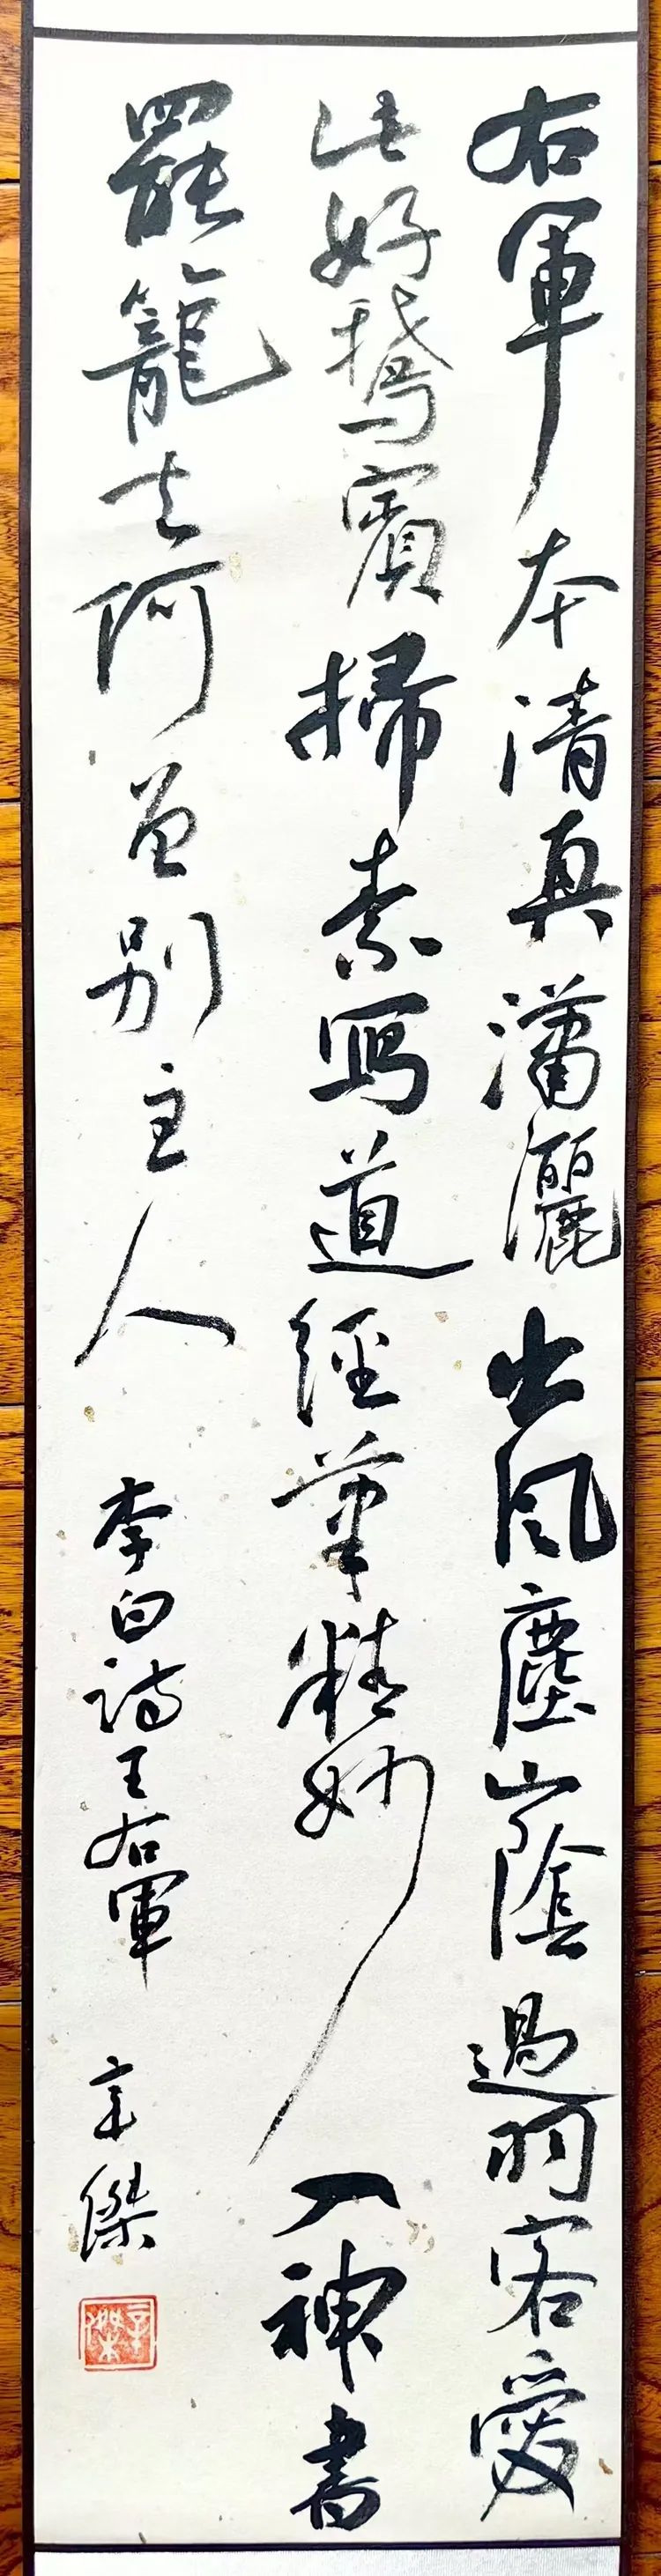 右軍本清真瀟灑出風塵山陰過羽客愛
此好鵝賓掃素寫道經筆精妙入神書
罷籠去何曾別主人
李白詩王右軍
傑